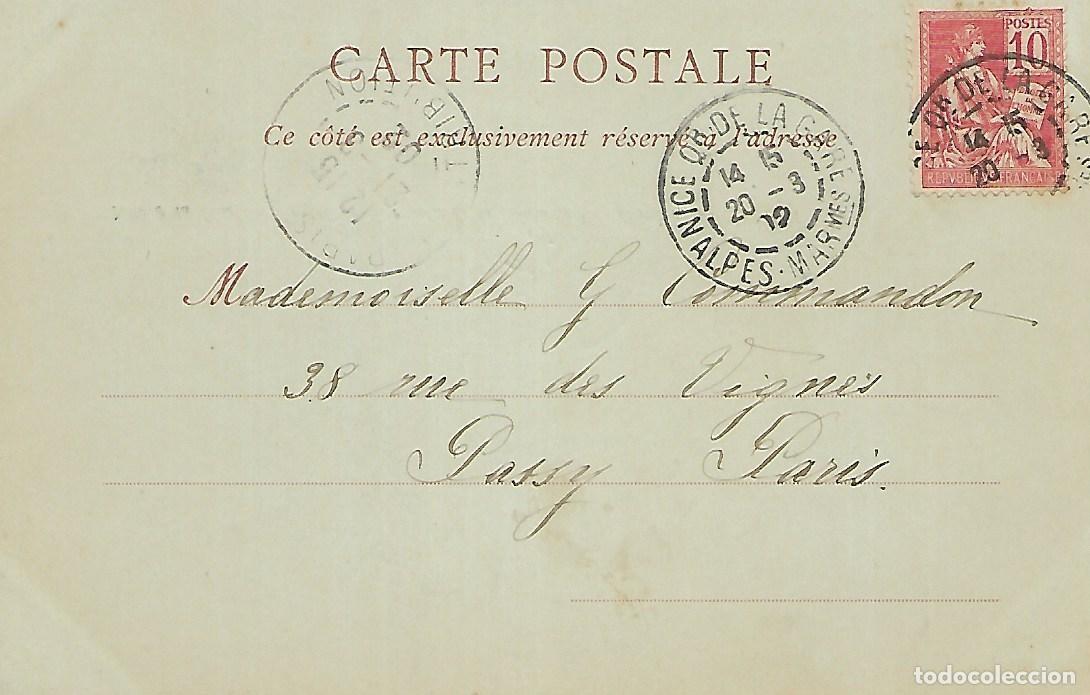 CARTE POSTALE
Ce côté est exclusivement réservé à l'adresse
POSTES
10
REPUBLIQUE FRANÇAISE
NICE QR DE LA GARE
14 15
20 - 3
02
ALPES-MARMES
DE LA GARE
14 15
20 - 3
PARIS DISTRIBUTION
Mademoiselle G Commandon
38 rue des Vignes
Passy Paris.
todocoleccion